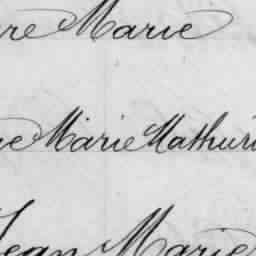 re Marie
ne Marie Mathuri
Jean Marie